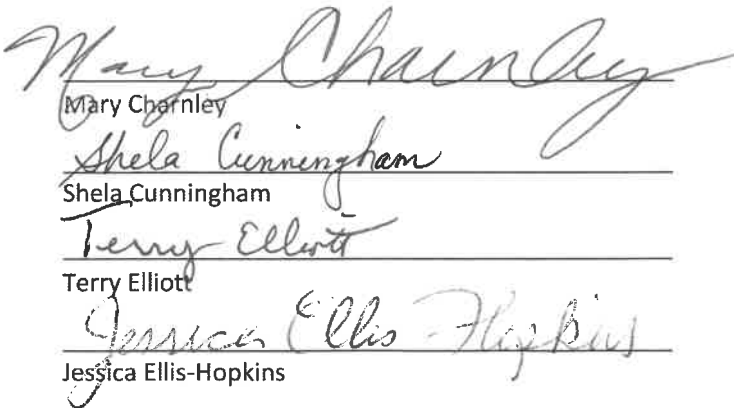 Mary Charnley
Mary Charnley
Shela Cunningham
Shela Cunningham
Terry Elliott
Terry Elliott
Jessica Ellis Hopkins
Jessica Ellis-Hopkins